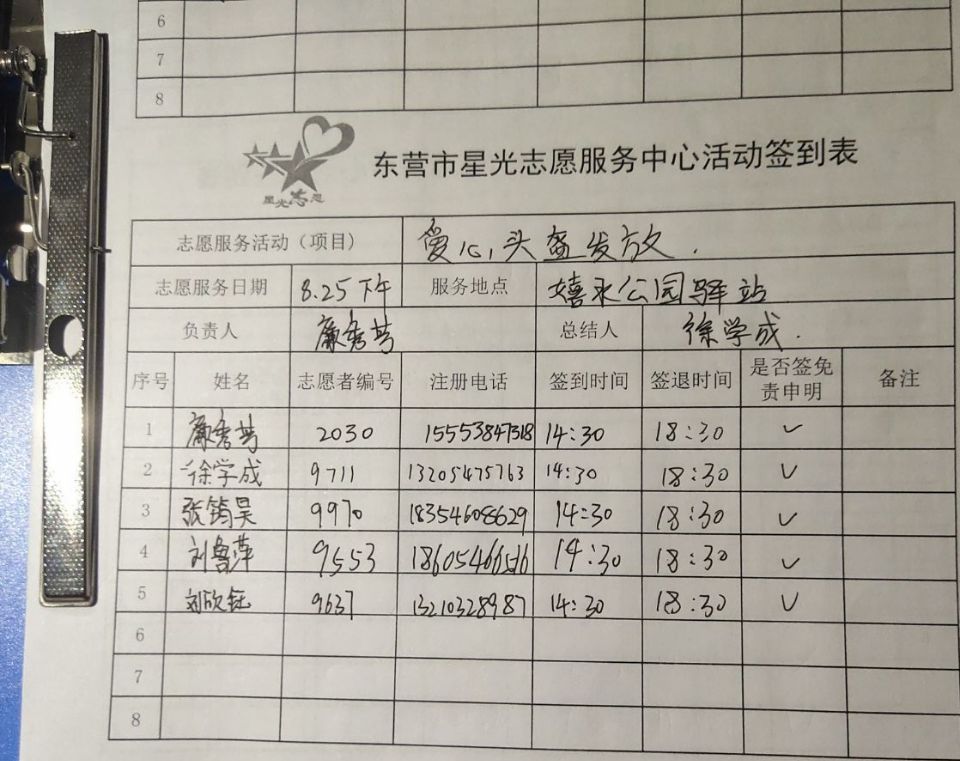 6
7
8
星光志愿
东营市星光志愿服务中心活动签到表
志愿服务活动（项目） 爱心头盔发放.
志愿服务日期 8.25下午 服务地点 嬉水公园驿站
负责人 廉秀芳 总结人 徐学成.
序号 姓名 志愿者编号 注册电话 签到时间 签退时间 是否签免责申明 备注
1 廉秀芳 2030 15553847518 14:30 18:30 ✓
2 徐学成 9711 13205475763 14:30 18:30 ✓
3 张筠昊 9970 18354608629 14:30 18:30 ✓
4 刘鲁萍 9553 18605466516 14:30 18:30 ✓
5 刘欣钰 9637 13210328987 14:30 18:30 ✓
6
7
8